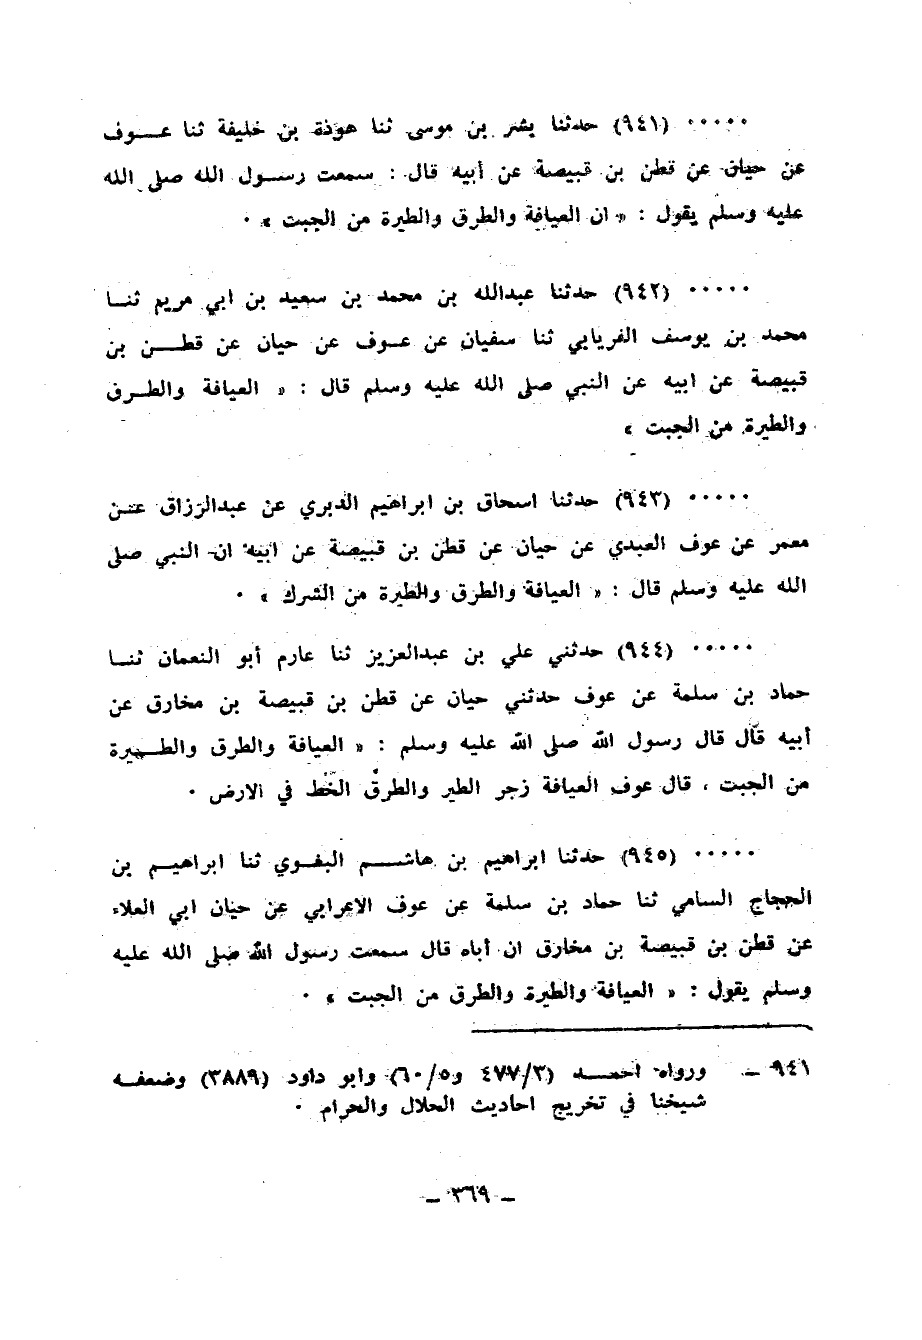 ..... (٩٤١) حدثنا بشر بن موسى ثنا هوذة بن خليفة ثنا عــوف
عن حيان عن قطن بن قبيصة عن أبيه قال : سمعت رســول الله صلى الله
عليه وسلم يقول : « ان العيافة والطرق والطيرة من الجبت » .
..... (٩٤٢) حدثنا عبدالله بن محمد بن سعيد بن ابي مريم ثنــا
محمد بن يوسف الفريابي ثنا سفيان عن عــوف عن حيان عن قطــن بن
قبيصة عن ابيه عن النبي صلى الله عليه وسلم قال : « العيافة والطــرق
والطيرة من الجبت »
..... (٩٤٣) حدثنا اسحاق بن ابراهيم الدبري عن عبدالرزاق عــن
معمر عن عوف العبدي عن حيان عن قطن بن قبيصة عن ابيه ان النبي صلى
الله عليه وسلم قال : « العيافة والطرق والطيرة من الشرك » .
..... (٩٤٤) حدثني علي بن عبدالعزيز ثنا عارم أبو النعمان ثنــا
حماد بن سلمة عن عوف حدثني حيان عن قطن بن قبيصة بن مخارق عن
أبيه قال قال رسول الله صلى الله عليه وسلم : « العيافة والطرق والطــيرة
من الجبت ، قال عوف العيافة زجر الطير والطرق الخط في الارض .
..... (٩٤٥) حدثنا ابراهيم بن هاشــم البغــوي ثنا ابراهيــم بن
الحجاج السامي ثنا حماد بن سلمة عن عوف الاعرابي عن حيان ابي العلاء
عن قطن بن قبيصة بن مخارق ان أباه قال سمعت رسول الله صلى الله عليه
وسلم يقول : « العيافة والطيرة والطرق من الجبت » .
٩٤١ ــ ورواه احمــد (٤٧٧/٣ و٦٠/٥) وابو داود (٣٨٨٩) وضعفــه
شيخنا في تخريج احاديث الحلال والحرام .
ــ ٣٦٩ ــ